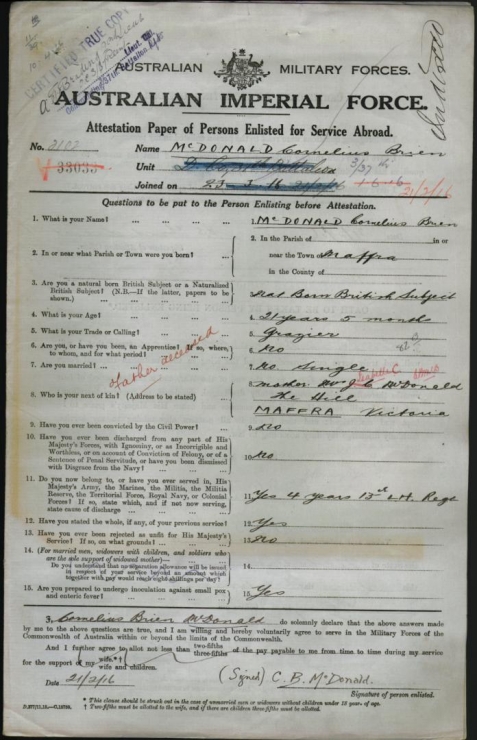 CERTIFIED TRUE COPY
AUSTRALIAN MILITARY FORCES.
AUSTRALIAN IMPERIAL FORCE.
Attestation Paper of Persons Enlisted for Service Abroad.
No. 2102 Name McDONALD Cornelius Brien
V 33033 Unit 3/37th
Joined on 23-3-16 21/2/16 21/2/16
Questions to be put to the Person Enlisting before Attestation.
1. What is your Name? ... ... ... 1. McDONALD Cornelius Brien
2. In or near what Parish or Town were you born? ... 2. In the Parish of in or
near the Town of Maffra
in the County of
3. Are you a natural born British Subject or a Naturalized
British Subject? (N.B.—If the latter, papers to be
shown.) 3. Nat Born British Subject
4. What is your Age? 4. 21 years 5 months
5. What is your Trade or Calling? 5. Grazier
6. Are you, or have you been, an Apprentice? If so, where,
to whom, and for what period? 6. No
7. Are you married? 7. No Single
Father deceased
8. Who is your next of kin? (Address to be stated) 8. Mother Mrs J C McDonald
The Hill
MAFFRA Victoria
9. Have you ever been convicted by the Civil Power? 9. No
10. Have you ever been discharged from any part of His
Majesty's Forces, with Ignominy, or as Incorrigible and
Worthless, or on account of Conviction of Felony, or of a
Sentence of Penal Servitude, or have you been dismissed
with Disgrace from the Navy? 10. No
11. Do you now belong to, or have you ever served in, His
Majesty's Army, the Marines, the Militia, the Militia
Reserve, the Territorial Force, Royal Navy, or Colonial
Forces? If so, state which, and if not now serving,
state cause of discharge 11. Yes 4 years 13th L.H. Regt
12. Have you stated the whole, if any, of your previous service? 12. Yes
13. Have you ever been rejected as unfit for His Majesty's
Service? If so, on what grounds? 13. No
14. (For married men, widowers with children, and soldiers who
are the sole support of widowed mother—
Do you understand that no separation allowance will be issued
in respect of your service beyond an amount which
together with pay would reach eight shillings per day? 14.
15. Are you prepared to undergo inoculation against small pox
and enteric fever? 15. Yes
I, Cornelius Brien McDonald do solemnly declare that the above answers made
by me to the above questions are true, and I am willing and hereby voluntarily agree to serve in the Military Forces of the
Commonwealth of Australia within or beyond the limits of the Commonwealth.
And I further agree to allot not less than two-fifths three-fifths of the pay payable to me from time to time during my service
for the support of my wife.*† wife and children.
Date 21/2/16 (Signed) C. B. McDonald.
Signature of person enlisted.
* This clause should be struck out in the case of unmarried men or widowers without children under 18 years of age.
† Two-fifths must be allotted to the wife, and if there are children three-fifths must be allotted.